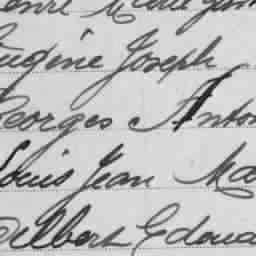 Eugène Joseph
Georges Anton
Louis Jean Ma
Gilbert Edoua